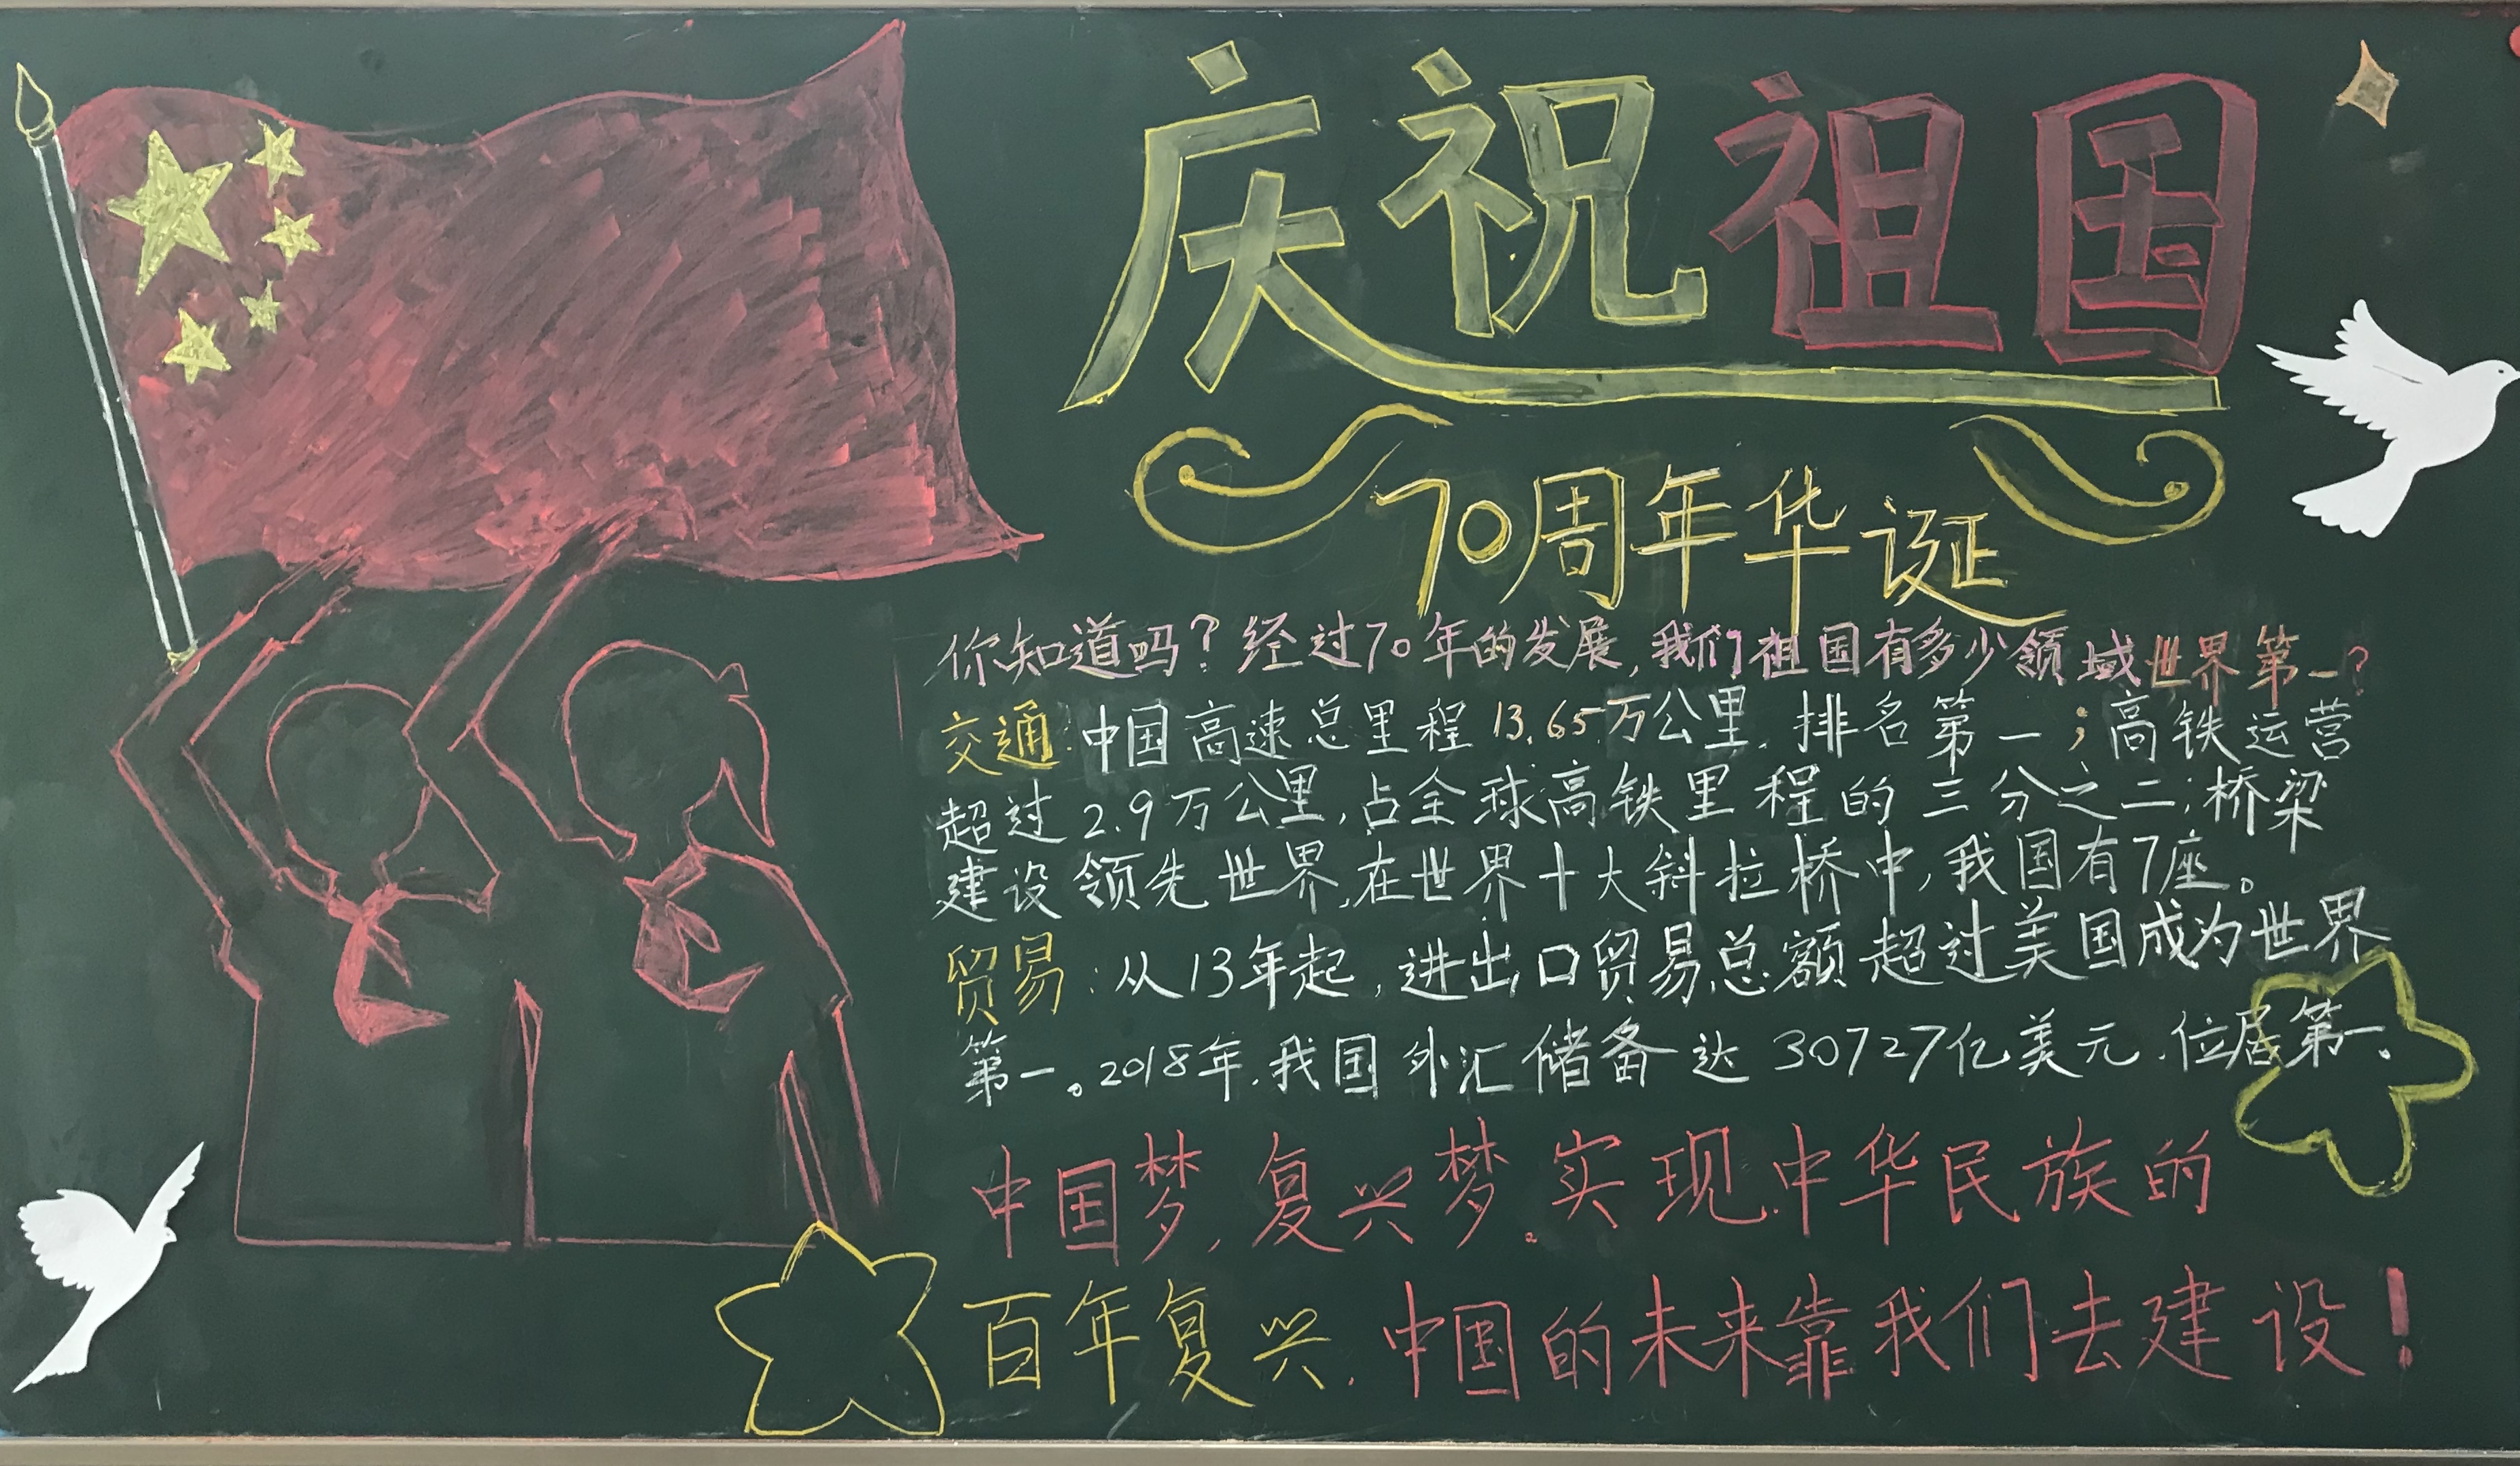 庆祝祖国
70周年华诞
你知道吗?经过70年的发展,我们祖国有多少领域世界第一?
交通:中国高速总里程13.65万公里,排名第一;高铁运营
超过2.9万公里,占全球高铁里程的三分之二;桥梁
建设领先世界,在世界十大斜拉桥中,我国有7座。
贸易:从13年起,进出口贸易总额超过美国成为世界
第一。2018年,我国外汇储备达30727亿美元,位居第一。
中国梦,复兴梦。实现中华民族的
百年复兴,中国的未来靠我们去建设!